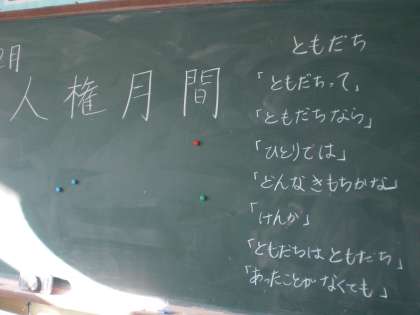 2月
人権月間
ともだち
「ともだちって」
「ともだちなら」
「ひとりでは」
「どんなきもちかな」
「けんか」
「ともだちはともだち」
「あったことがなくても」